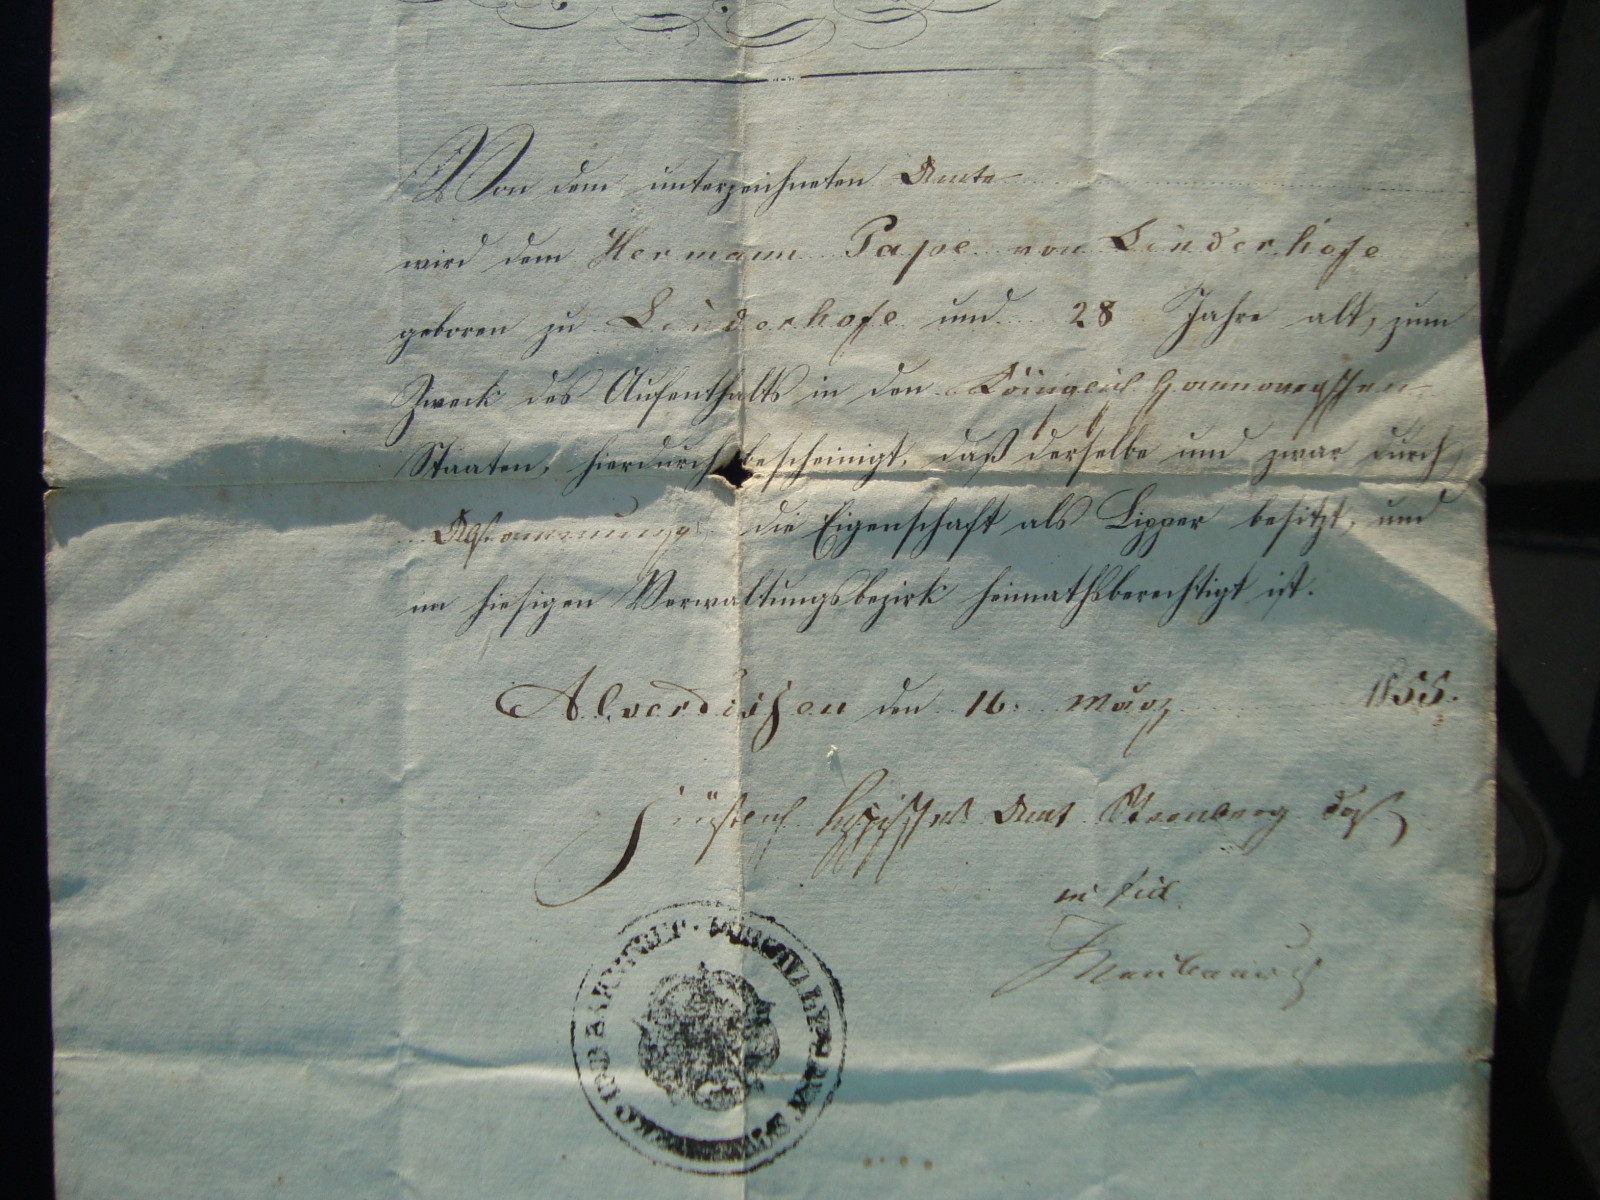 Von dem unterzeichneten Amte
wird dem Hermann Pape von Linderhofe
geboren zu Linderhofe und 28 Jahre alt, zum
Zweck des Aufenthalts in den Königlich Hannoverschen
Staaten, hierdurch bescheinigt, daß derselbe und zwar durch
Abstammung die Eigenschaft als Lipper besitzt, und
im hiesigen Verwaltungsbezirk heimathsberechtigt ist.
Alverdissen den 16. März 1855.
Fürstlich Lippisches Amt Sternberg
in fid.